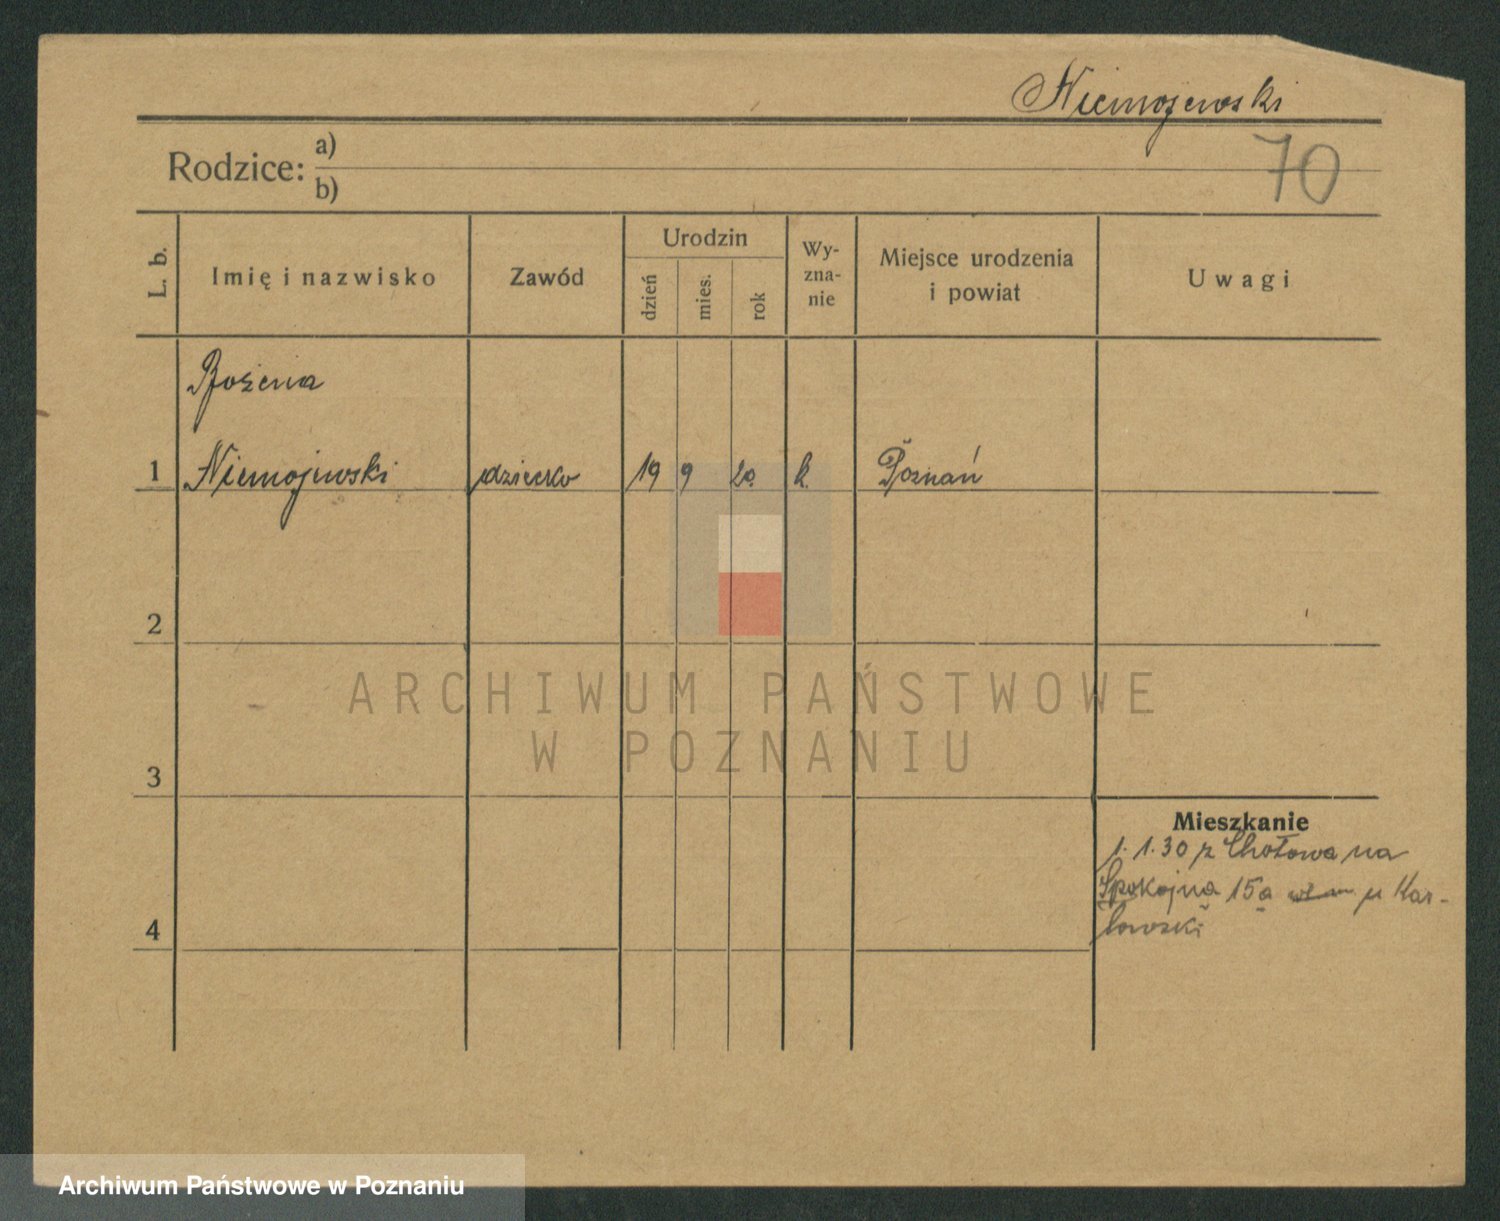 Niemojewski
70
Rodzice: a)
b)
L. b.
Imię i nazwisko
Zawód
Urodzin
dzień
mies.
rok
Wy-
zna-
nie
Miejsce urodzenia
i powiat
Uwagi
Bożena
1 Niemojewski dziecko 19 9 20. k. Poznań
2
ARCHIWUM PAŃSTWOWE
W POZNANIU
3
Mieszkanie
1.1.30 z Chotowa na
Spokojna 15a u Kar-
łowski
4
Archiwum Państwowe w Poznaniu